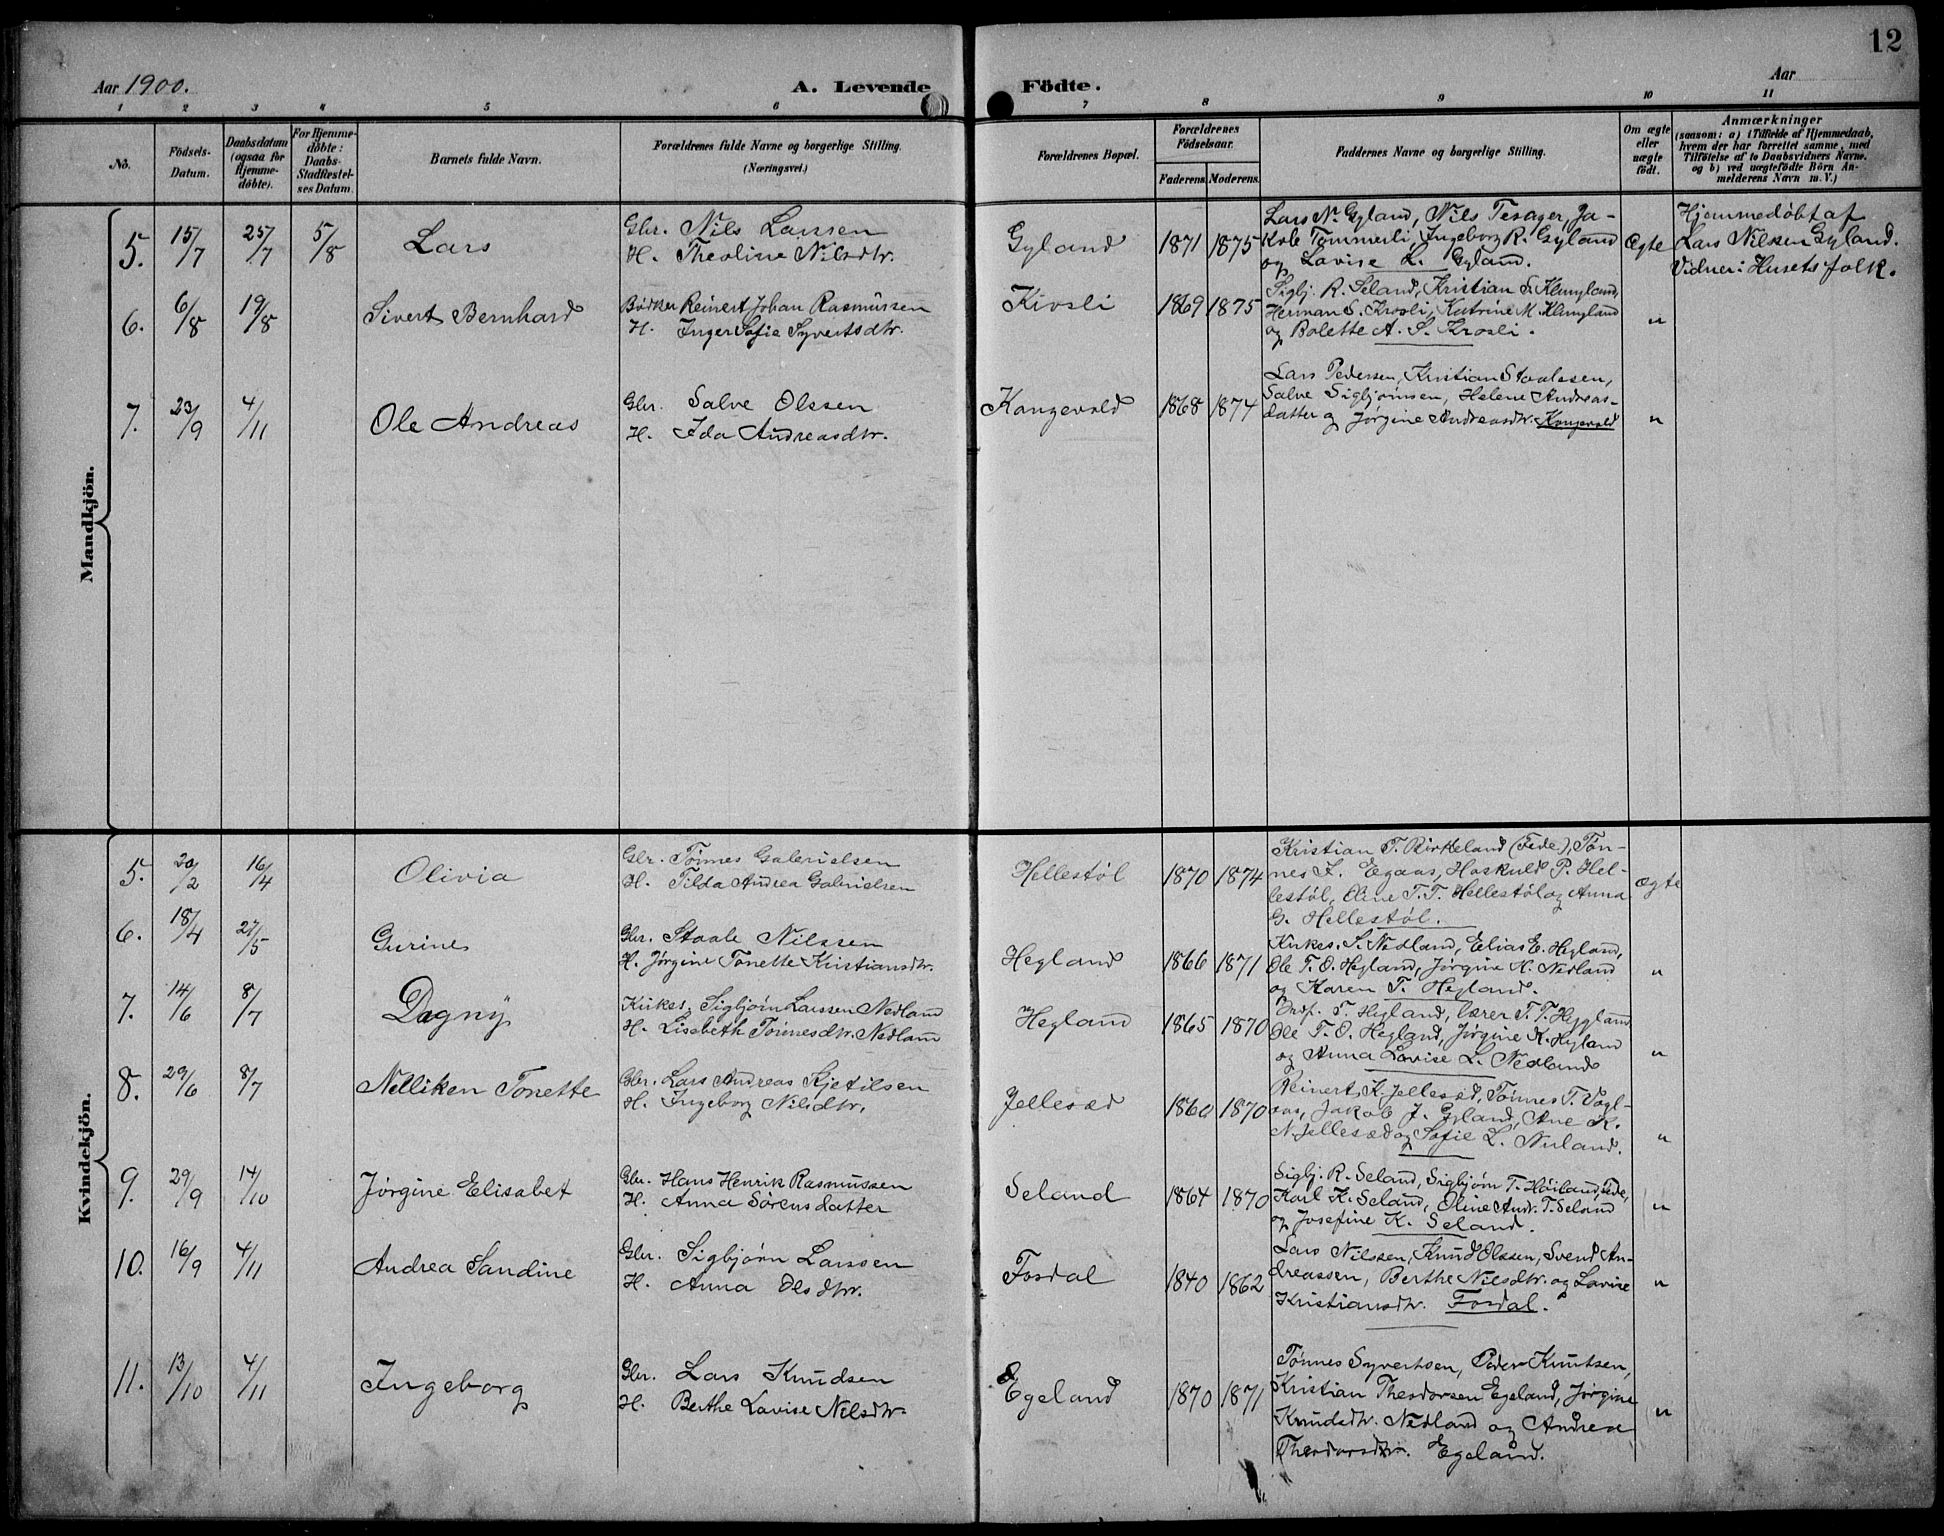 12
Aar 1900.
A. Levende Födte.
Aar
1 2 3 4 5 6 7 8 9 10 11
Nô.
Födsels-
Datum.
Daabsdatum
(ogsaa for
Hjemme-
döbte).
For Hjemme-
döbte:
Daabs-
Stadfæstel-
ses Datum.
Barnets fulde Navn.
Forældrenes fulde Navne og borgerlige Stilling.
(Næringsvei.)
Forældrenes Bopæl.
Forældrenes
Födselsaar.
Faderens. Moderens.
Faddernes Navne og borgerlige Stilling.
Om ægte
eller
uægte
födt.
Anmærkninger
(saasom: a) i Tilfælde af Hjemmedaab,
hvem der har forrettet samme, med
Tilföielse af to Daabsvidners Navne.
og b) ved uægtefödte Börn An-
melderens Navn m. V.)
Mandkjön.
5. 15/7 25/7 5/8 Lars
Gbr. Nils Larssen
H. Theoline Nilsdtr.
Gyland 1871 1875
Lars N. Gyland, Nils Tesager, Ja-
kob Tømmerli, Ingeborg R. Gyland
og Lovise L. Gyland.
Ægte
Hjemmedøbt af
Lars Nilssen Gyland.
Vidner: Husets folk.
6. 6/8 19/8 Sivert Bernhard
Bødker Reinert Johan Rasmussen
H. Inger Sofie Syvertsdtr.
Kivsli 1869 1875
Sigbj. R. Seland, Kristian S.
Herman S. Krosli, Katrine M.
og Bolette A. S. Krosli.
"
7. 23/9 4/11 Ole Andreas
Gbr. Salve Olssen
H. Ida Andreasdtr.
Kongevold 1868 1874
Lars Pedersen, Kristian Staalesen,
Salve Sigbjørnsen, Helene Andreas-
datter og Jørgine Andreasdtr. Kongevold
"
Kvindekjön.
5. 20/2 16/4 Olivia
Gbr. Tønnes Gabrielsen
H. Tilda Andrea Gabrielsen
Hellestøl 1870 1874
Kristian T. Birkeland (Fede), Tøn-
nes F. Egaas, Haskuld P. Hel-
lestøl, Oline T. T. Hellestøl og Anna
G. Hellestøl.
Ægte
6. 18/4 27/5 Gurine
Gbr. Staale Nilssen
H. Jørgine Tonette Kristiansdtr.
Hegland 1866 1871
Kirkes. S. Nedland, Elias E. Hegland,
Ole T. O. Hegland, Jørgine H. Nedland
og Karen T. Hegland.
"
7. 14/6 8/7 Dagny
Kirkes. Sigbjørn Larssen Nedland
H. Lisabeth Tønnesdtr. Nedland
Hegland 1865 1870
T. Hegland, lærer T. T. Heggland
Ole T. O. Hegland, Jørgine K. Hegland
og Anna Lovise L. Nedland
"
8. 29/6 8/7 Nelliken Tonette
Gbr. Lars Andreas Kjetilsen
H. Ingeborg Nilsdtr.
Jellesæd 1860 1870
Reinert K. Jellesæd, Tønnes T. Vogl-
aas, Jakob J. Gyland, Ane K.
N. Jellesæd og Sofie L. Nuland.
"
9. 29/9 14/10 Jørgine Elisabet
Gbr. Hans Henrik Rasmussen
H. Anna Sørensdatter
Seland 1864 1870
Sigbj. R. Seland, Sigbjørn T. Høiland, Fede,
Karl K. Seland, Oline Andr. T. Seland
og Josefine K. Seland.
"
10. 16/9 4/11 Andrea Sandine
Gbr. Sigbjørn Larssen
H. Anna Olsdtr.
Fosdal 1840 1862
Lars Nilssen, Knud Olssen, Svend An-
dreassen, Berthe Nilsdtr. og Lovise
Kristiansdtr. Fosdal.
"
11. 13/10 4/11 Ingeborg
Gbr. Lars Knudsen
H. Berthe Lovise Nilsdtr.
Egeland 1870 1871
Tønnes Syvertsen, Peder Knutsen,
Kristian Theodorsen Egeland, Jørgine
Knudsdtr. Nedland og Andrea
Theodorsdtr. Egeland.
"